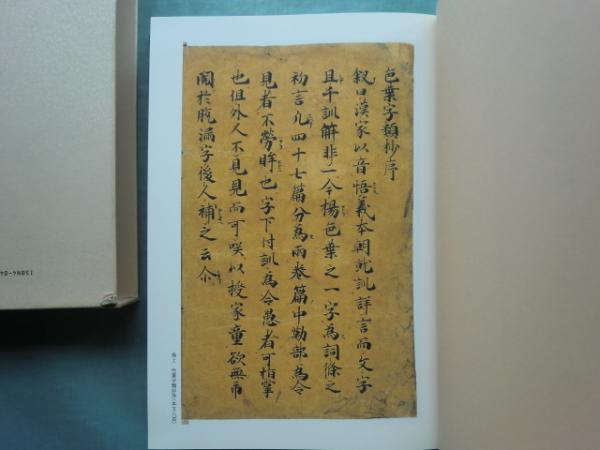 色葉字類抄序
叙曰漢家以音悟義本朝就訓詳言而文字
且千訓解非一今揚色葉之一字為詞條之
初言凡四十七篇分為兩卷篇中勒部為令
見者不勞眸也字下付訓為令愚者可指掌
也但外人不見見而可咲以授家童欲無市
閲於脱漏字後人補之云尒